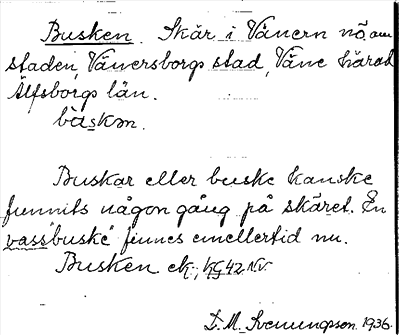 Busken. Skär i Vänern nö om
staden, Vänersborgs stad, Väne härad
Älfsborgs län.
bùskɷn.
Buskar eller buske kanske
funnits någon gång på skäret. En
vassbuske finnes emellertid nu.
Busken ek, KG 42 NV
D. M. Svenungsson 1936.